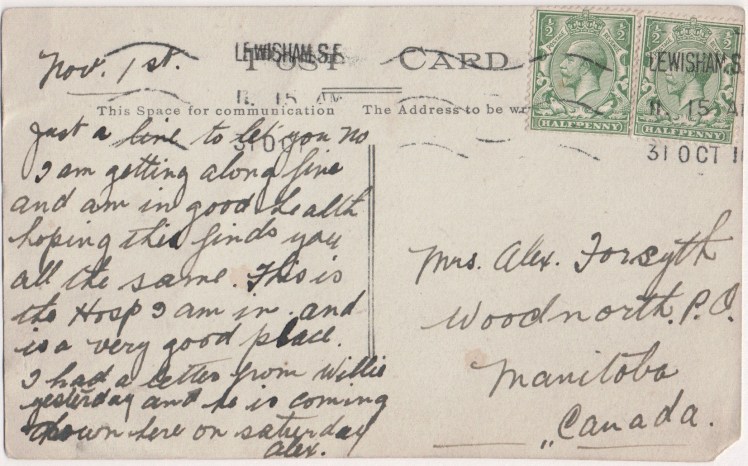 POST CARD
LEWISHAM. S.E.
11. 15 AM
31 OCT
This Space for communication
The Address to be
½ ½
HALFPENNY
½ ½
HALFPENNY
LEWISHAM. S.
11. 15 A
31 OCT 1
Nov. 1st.
Just a line to let you no
I am getting along fine
and am in good health
hoping this finds you
all the same. This is
the Hosp I am in. and
is a very good place.
I had a letter from Willie
yesterday and he is coming
down here on saturday
Alex.
Mrs. Alex. Forsyth
Woodnorth. P.O.
Manitoba
Canada.